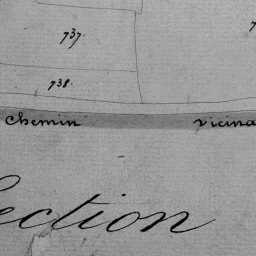 737.
738.
Chemin vicina
Section